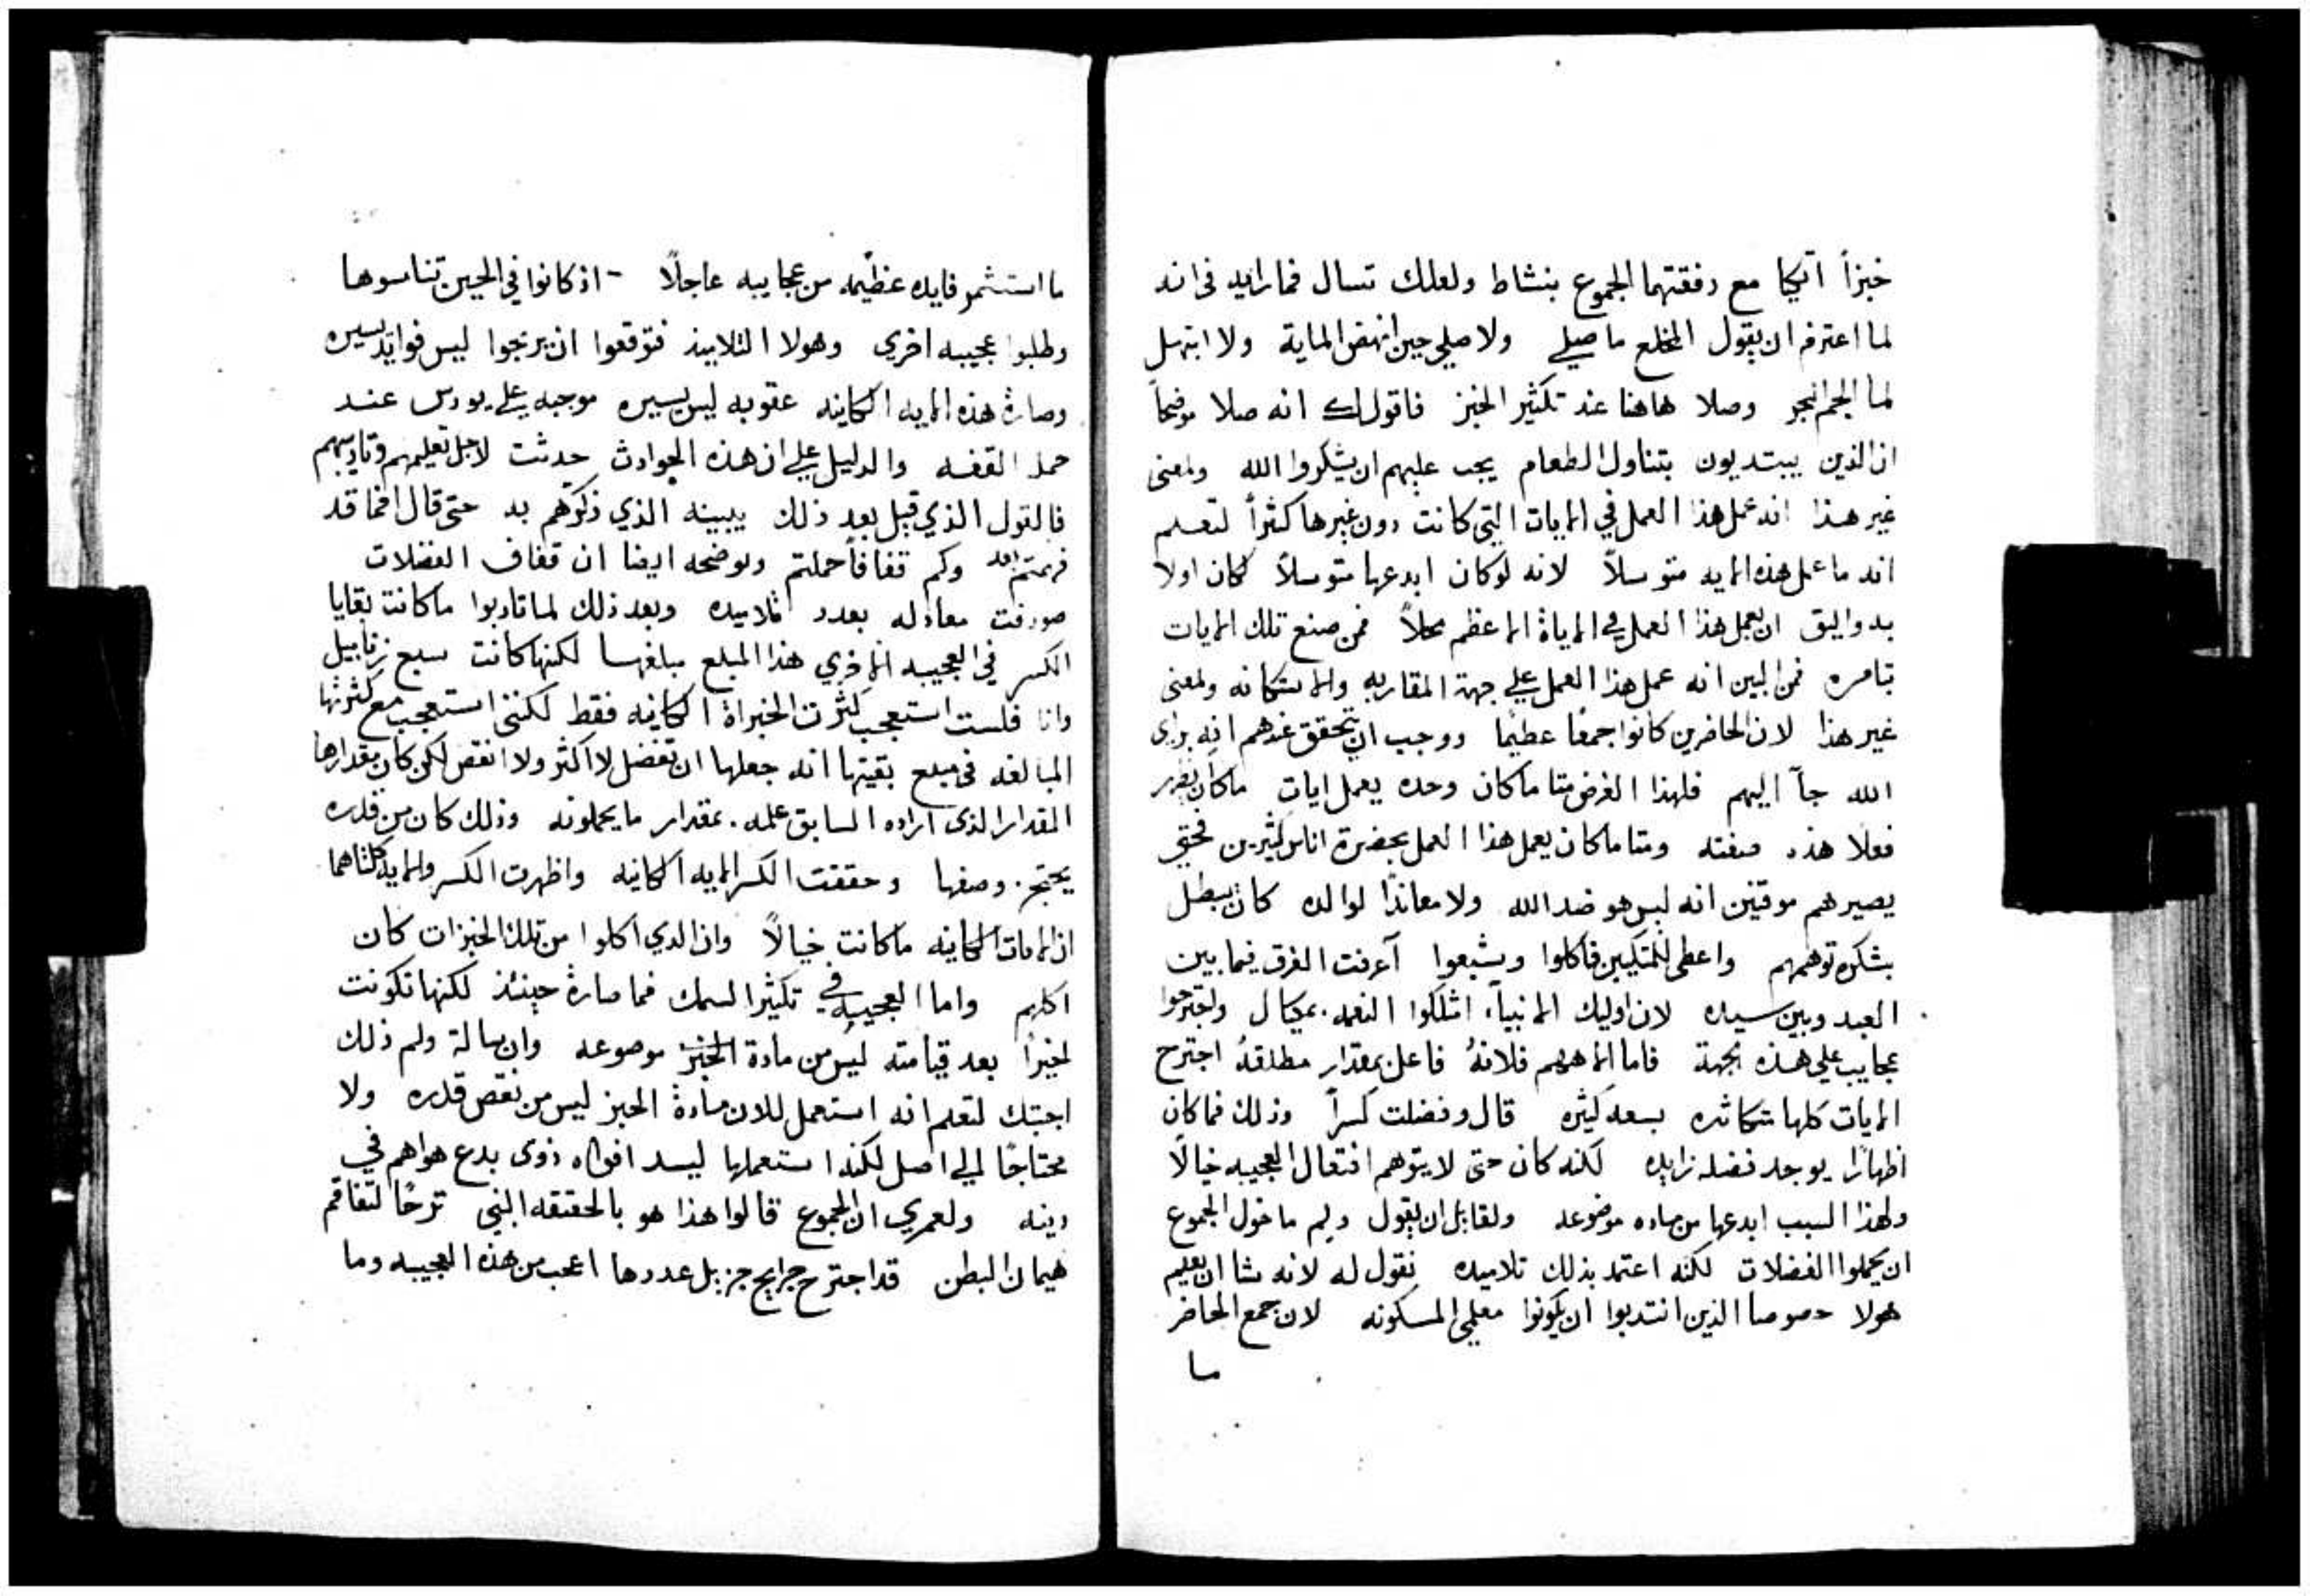 خبزاً اتيكا مع رفقتهما الجموع بنشاط ولعلك تسال فما رايه في انه
لما اعتزم ان يقول المخلع ما صلي ولا صلي حين انهض الماية ولا ابتهل
لما الجم البحر وصلا هاهنا عند تكثير الخبز فاقول لك انه صلا موضحاً
ان الذين يبتديون بتناول الطعام يجب عليهم ان يشكروا الله ولمعنى
غير هذا انه عمل هذا العمل في الايات التي كانت دون غيرها كثراً لتعلم
انه ما عمل هذه الايه متوسلاً لانه لو كان ابدعها متوسلاً لكان اولا
به واليق ان يعمل هذا العمل في الاياة الاعظم محلاً فمن صنع تلك الايات
بامره فمن البين انه عمل هذا العمل علي جهة المقاربه والاستكانه ولمعنى
غير هذا لان الحاضرين كانوا جمعًا عظيمًا ووجب ان يتحقق عندهم انه براي
الله جآ اليهم فلهذا الغرض متا ما كان وحده يعمل ايات ما كان يظهر
فعلا هذه صفته ومتا ما كان يعمل هذا العمل بحضرة اناس كثيرين فحتي
يصيرهم موقنين انه ليس هو ضد الله ولا معاندًا لوالده كان يبطل
بشكره توهمهم واعطى للمتكيين فاكلوا وشبعوا آعرفت الفرق فيما بين
العبد وبين سيده لان اوليك الانبيآء امتلكوا النعمه بمكيال واجترحوا
عجايب علي هذه الجهة فاما الاههم فلانهُ فاعل بمقدار مطلقهُ اجترح
الايات كلها متكاثره بسعه كثيره قال وفضلت كسراً وذلك فما كان
اظهارًا يوجد فضله زايده لكنه كان حتى لا يتوهم افتعال العجيبه خيالاً
ولهذا السبب ابدعها من ماده موضوعه ولقابل ان يقول ولم ما خول الجموع
ان يحملوا الفضلات لكنه اعتمد بذلك تلاميده نقول له لانه شا ان يعلم
هولا خصوصا الذين انتدبوا ان يكونوا معلمي المسكونه لان جمع الحاضر
ما
ما استثمر فايده عظيمه من عجايبه عاجلاً اذ كانوا في الحين تناسوها
وطلبوا عجيبه اخري وهولا التلاميذ فتوقعوا ان يربحوا ليس فوايد يسيره
وصارة هذه الايه الكاينه عقوبه ليس يسيره موجبه علي يودس عند
حمل القفه والدليل علي ان هذه الحوادث حدثت لاجل تعليمهم وتاديبهم
فالقول الذي قيل بعد ذلك يبينه الذي ذكرهم به حتى قال افما قد
فهمتم بعد وكم قفافاً حملتم ويوضحه ايضا ان قفاف الفضلات
صودفت معادله بعدد تلاميده وبعد ذلك لما تادبوا ما كانت بقايا
الكسر في العجيبه الاخري هذا المبلع مبلغها لكنها كانت سبع زنابيل
وانا فلست استعجب كثرت الخبزاة الكاينه فقط لكنني استعجب مع كثرتها
المبالغه في مبلع بقيتها انه جعلها ان تفضل لا اكثر ولا انقص لكن كان مقدارها
المقدار الذي اراده السابق علمه بمقدار ما يحملونه وذلك كان من قدره
يحتج وصفها وحققت الكسر الايه الكاينه واظهرت الكسر والايه كلتاهما
ان الايات الكاينه ما كانت خيالاً وان الدي اكلوا من تلك الخبزات كان
اكلهم واما العجيبه في تكثير السمك فما صارة حينئذ لكنها تكونت
اخيراً بعد قيامته ليس من مادة الخبز موضوعه وان سالة ولم ذلك
اجبتك لتعلم انه استعمل للان مادة الخبز ليس من نقص قدره ولا
محتاجًا الي اصل لكنه استعملها ليسد افواه ذوى بدع هواهم في
دينه ولعمري ان الجموع قالوا هذا هو بالحقيقه النبي ترحًا لتفاقم
هيمان البطن قد اجترح جرايح جزيل عددها اعجب من هذه العجيبه وما